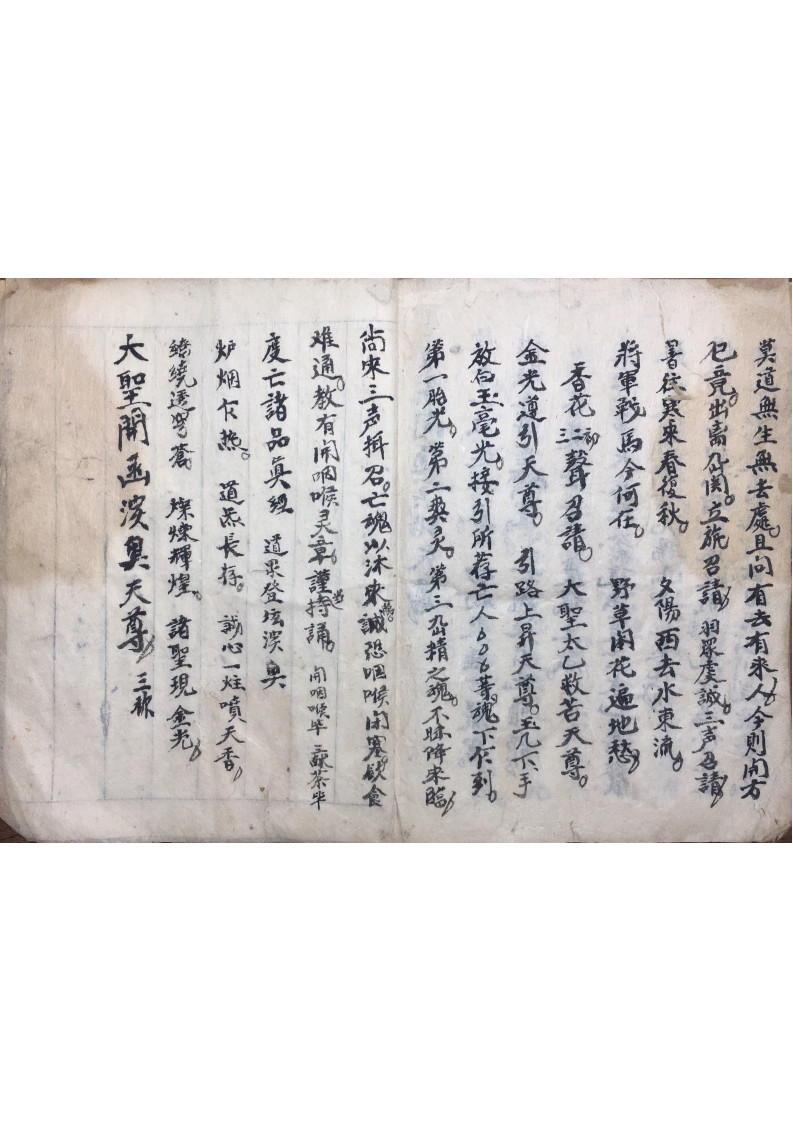 莫道無生無去處。且問有去有來人。今則開方
已竟。出离幽関。立旐召請。羽眾虔誠。三声召請。
暑往寒來春復秋。 夕陽西去水東流。
將軍戰馬今何在。 野草闲花遍地愁。
香花初二三聲召請。 大聖太乙救苦天尊。
金光遵引天尊。 引路上昇天尊。玉几下手
放白玉毫光。接引所荐亡人等魂下乍到。
第一胎光。第二爽灵。第三幽精之魂。不昧降來臨。
尙來三声揖召。亡魂以沐來臨。誠恐咽喉闭塞。飲食
难通。教有開咽喉灵章。謹當持誦。 開咽喉毕 三献茶毕
度亡諸品真經 道眾登坛演奥
炉烟乍爇。 道炁長存。 誠心一炷噴天香。
繚繞透穹蒼。 燦爍輝煌。諸聖現金光。
大聖開函演奥天尊 三称